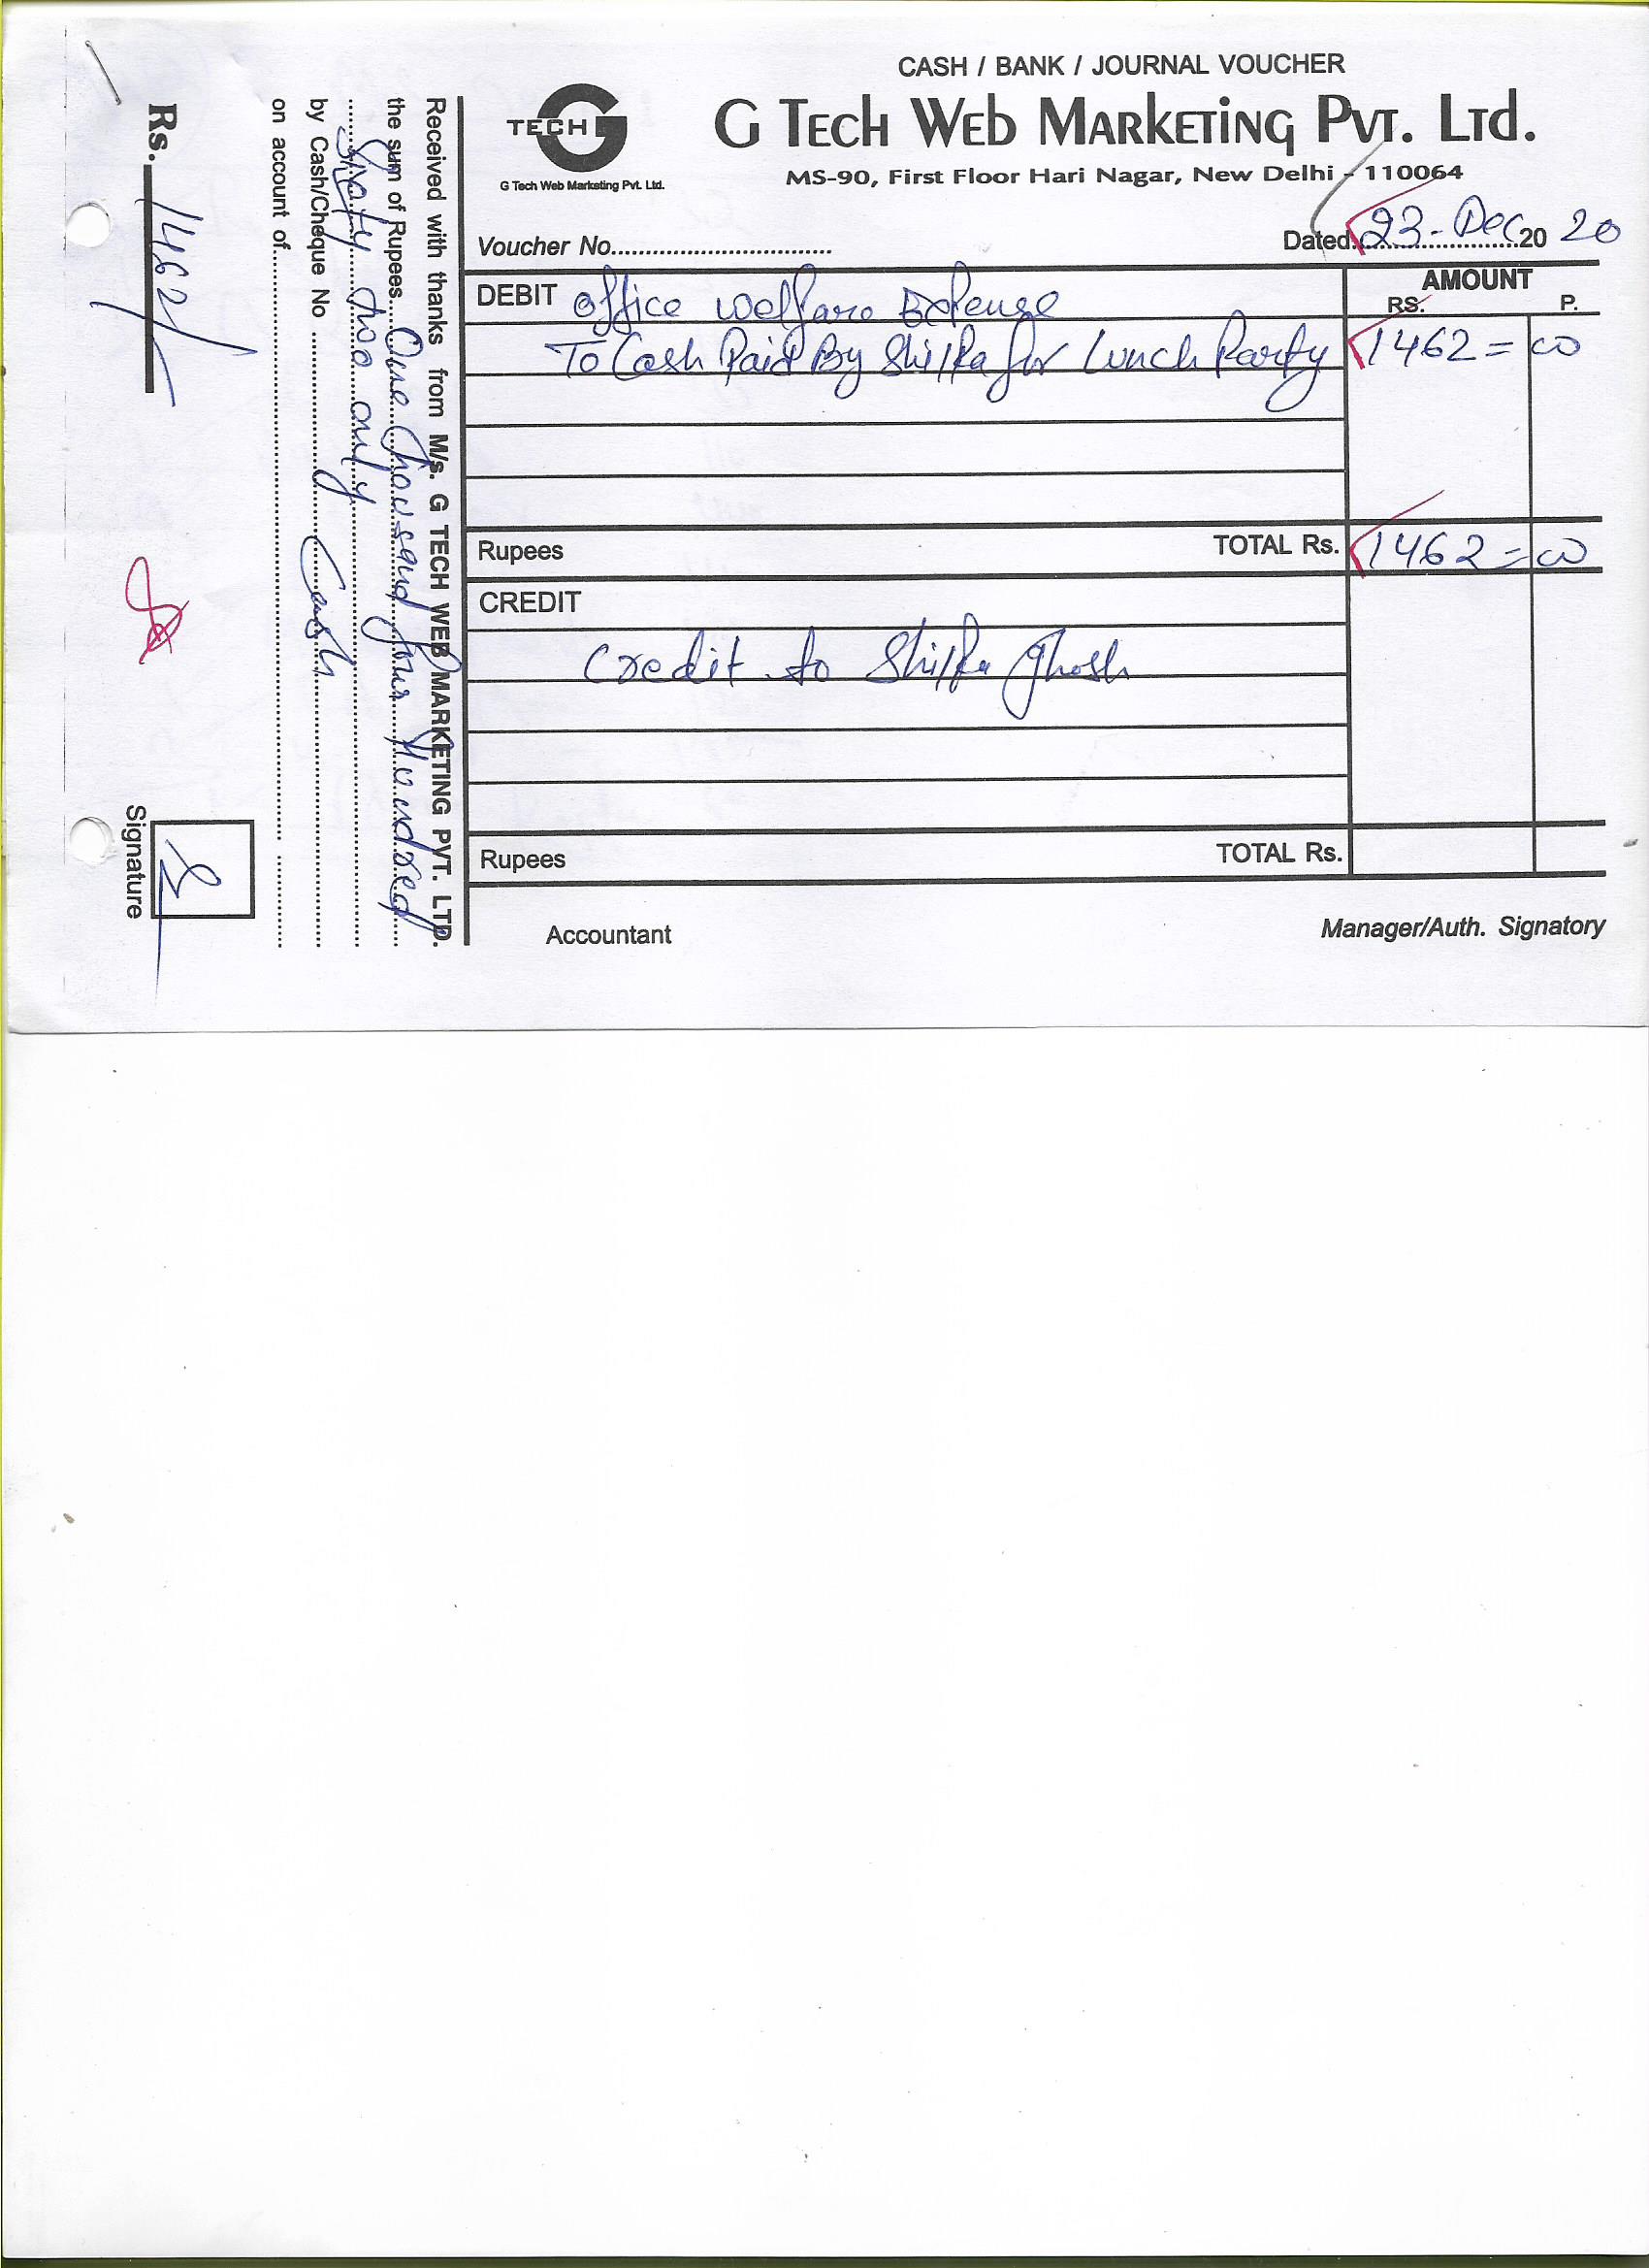 CASH / BANK / JOURNAL VOUCHER
G Tech Web Marketing Pvt. Ltd.
MS-90, First Floor Hari Nagar, New Delhi - 110064
TECH
G Tech Web Marketing Pvt. Ltd.
Voucher No.............................. Dated 23-Dec 20 20
DEBIT Office Welfare Expense AMOUNT
RS. P.
To Cash Paid By Shilpa for Lunch Party 1462 = 00
Rupees TOTAL Rs. 1462 = 00
CREDIT
Credit to Shilpa Ghosh
Rupees TOTAL Rs.
Accountant Manager/Auth. Signatory
Received with thanks from M/s. G TECH WEB MARKETING PVT. LTD.
the sum of Rupees One Thousand four Hundred
Sixty two only
by Cash/Cheque No Cash
on account of
Rs. 1462/-
Signature